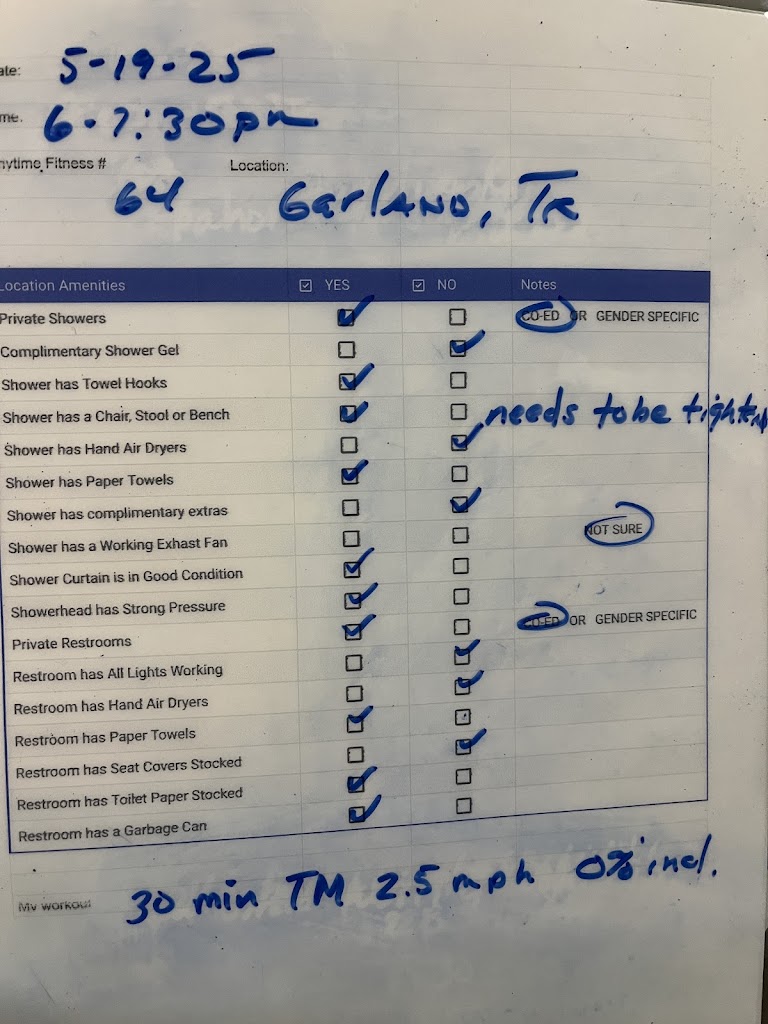 ate: 5-19-25
me. 6-7:30pm
nytime Fitness # Location:
64 Garland, Tx
Location Amenities ☑ YES ☑ NO Notes
Private Showers CO-ED OR GENDER SPECIFIC
Complimentary Shower Gel
Shower has Towel Hooks
Shower has a Chair, Stool or Bench needs to be
Shower has Hand Air Dryers
Shower has Paper Towels
Shower has complimentary extras
Shower has a Working Exhast Fan NOT SURE
Shower Curtain is in Good Condition
Showerhead has Strong Pressure
Private Restrooms CO-ED OR GENDER SPECIFIC
Restroom has All Lights Working
Restroom has Hand Air Dryers
Restroom has Paper Towels
Restroom has Seat Covers Stocked
Restroom has Toilet Paper Stocked
Restroom has a Garbage Can
My workout 30 min TM 2.5 mph 0% incl.